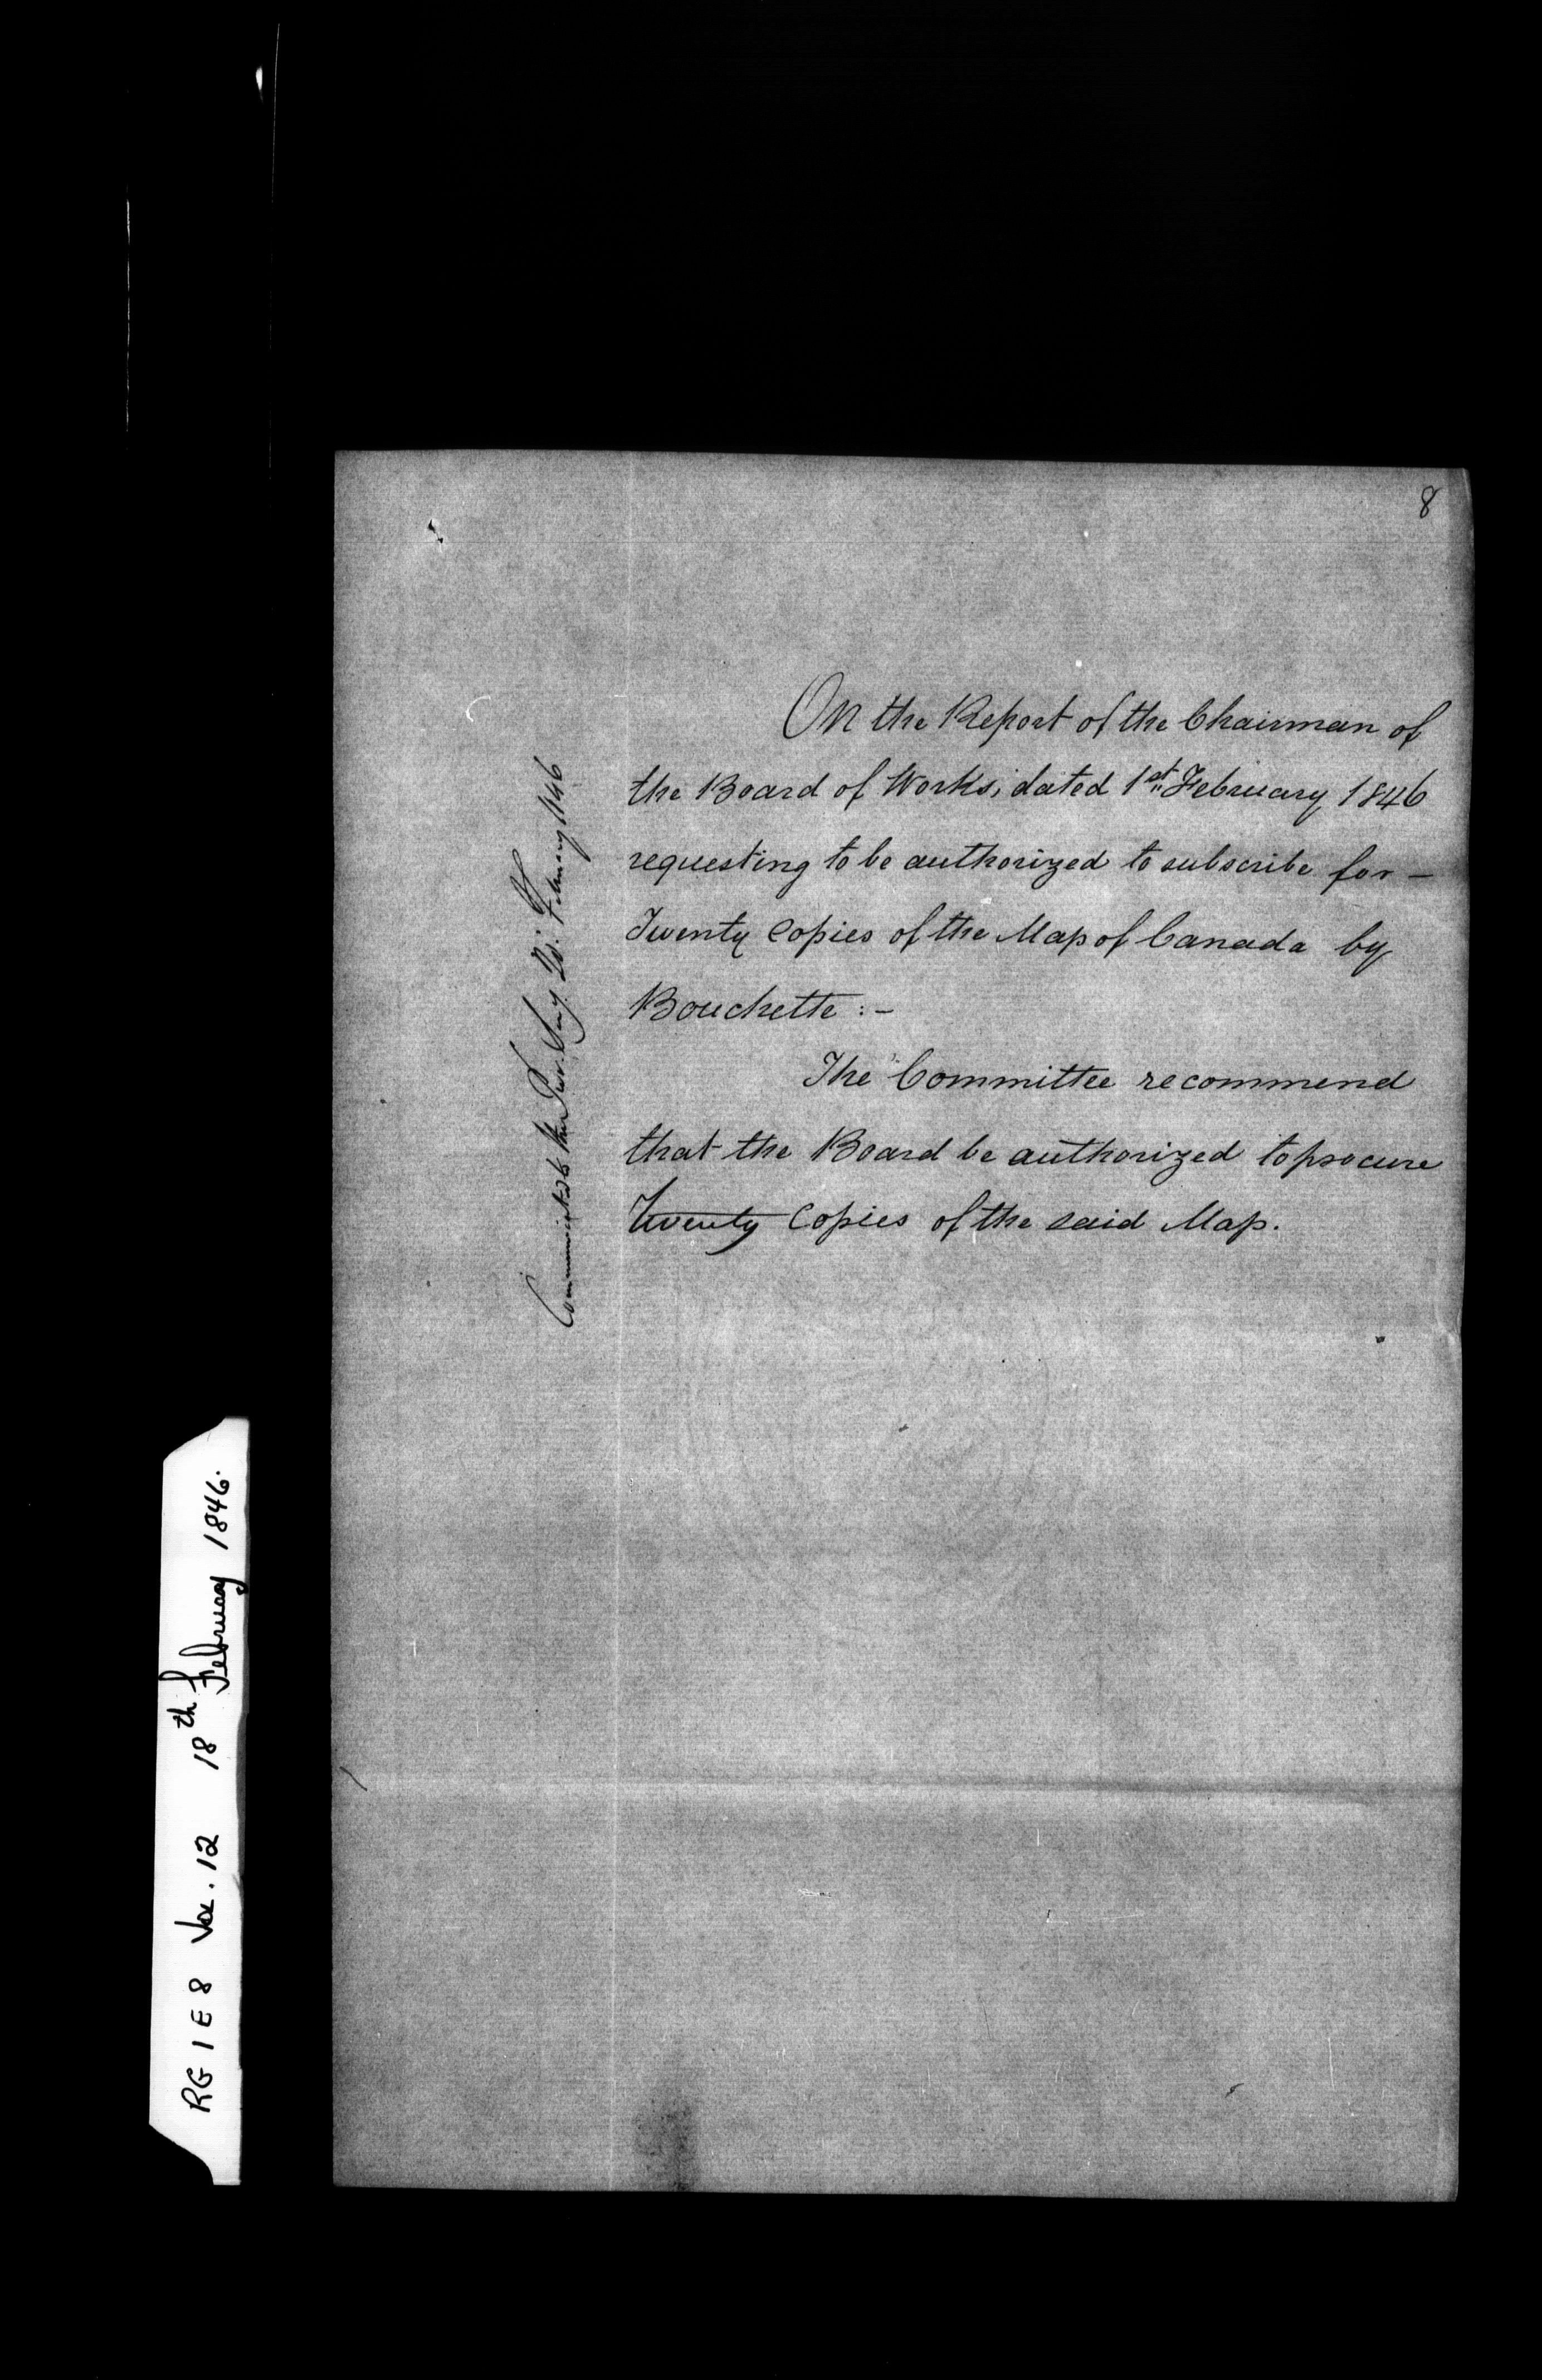 8
On the Report of the Chairman of
the Board of Works, dated 1st February 1846
requesting to be authorized to subscribe for —
Twenty Copies of the Map of Canada by
Bouchette :—
The Committee recommend
that the Board be authorized to procure
Twenty Copies of the said Map.
February 1846
RG 1 E 8 Vol. 12 18th February 1846.